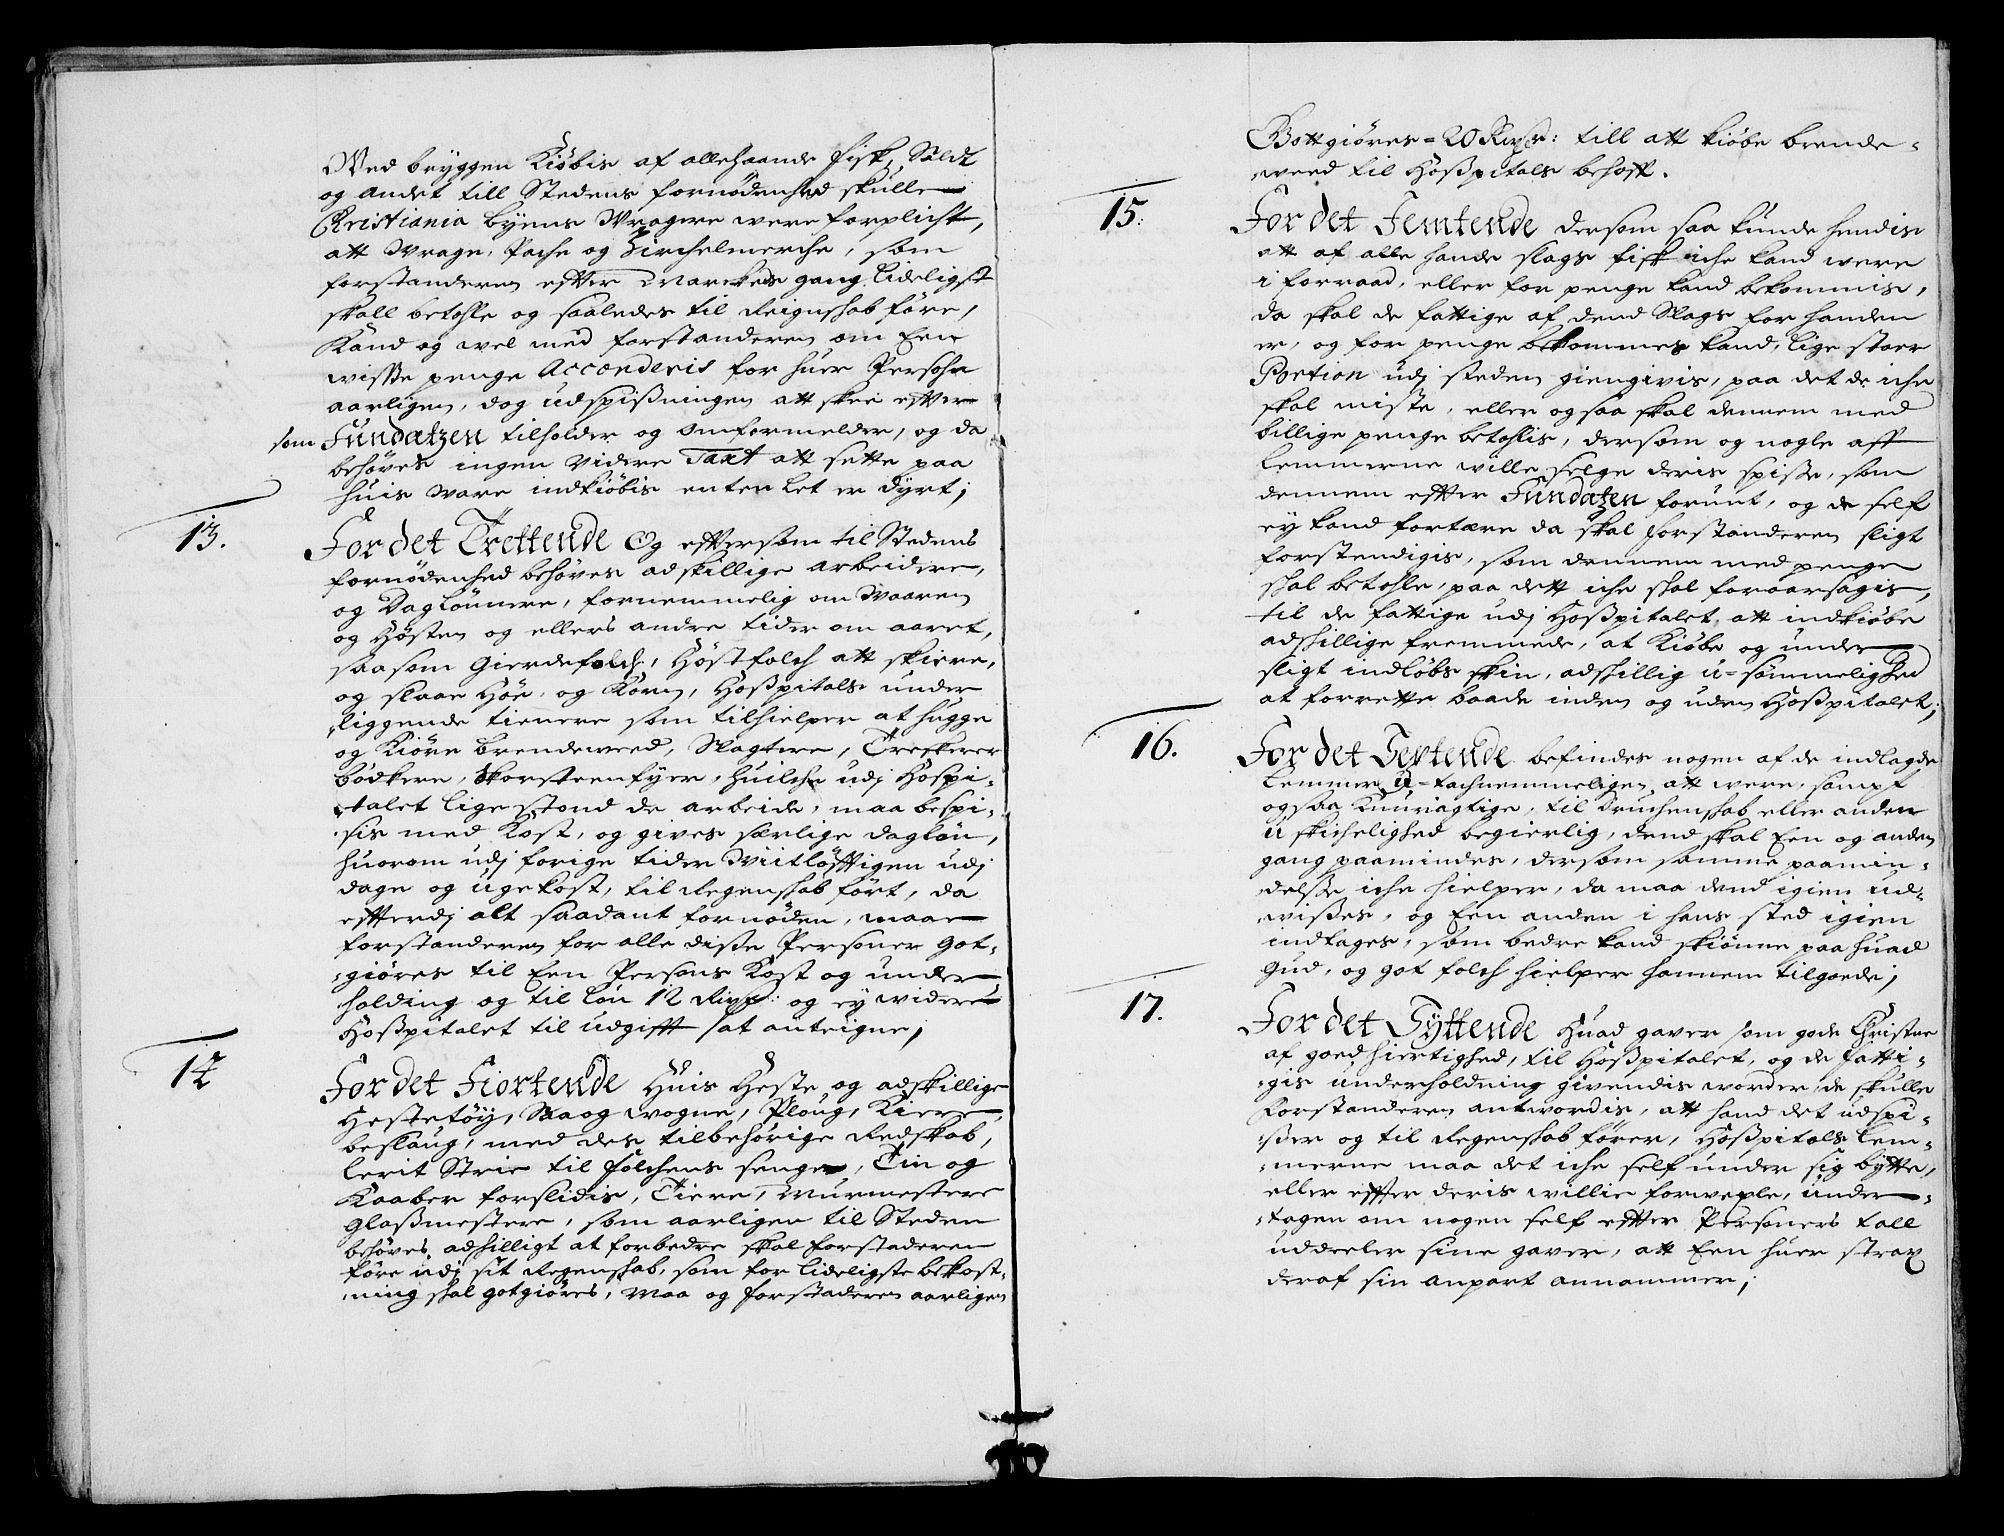 Wed bryggen Kiøbis af allehaande fisk, Saldt
og andet till Stedens fornødenhed skulle
Christiania byens Wragere were forplicht,
att Wrage, Pache og Zirchelmerche, som
forstanderen effter Marckeds gang lideligst
skall betahle og saaledes til Reignskab føre,
Kand og wel med forstanderen om Een
wisse penge Accorderis for huer Persohn
aarligen, dog udspißningen att skee effter
som Fundatzen tilholder og omformelder, og da
behøves ingen videre Taxt att sette paa
huis ware indkiøbis enten let er dyrt;
13. For det Trettende Og effterson til Stedens
fornødenhed behøves adskillige arbeidere,
og Daglønnere, fornemmelig om Waaren
og Høsten og ellers andre tider om aaret,
saasom Gierdefolch, Høstfolch att skiere,
og slaae Høe, og Korn, Hoßpitals under
liggende tienere som tilhielper at hugge
og Kiøre brendeweed, Slagtere, Treskerer
bødkere, Skorsteenfyer, huilche udj Hospi-
talet lige stond de arbeide, maa bespi-
sis med Kost, og gives særlige dagløn,
huorom udj forige tider Wiitløfftigen udj
dage og ugekost, til Regenskab ført, da
effterdj alt saadant fornøden, maae
forstanderen for alle diße Personer got-
giøres til Een Persons Kost og under
holding og til løn 12 Rixd: og ey widere
Hoßpitalet til udgifft at anteigne;
14 For det Fiortende Huis Heste og adskillige
Hestetøy, Slaog wogne, Ploug, Kiere,
beslaug, med des tilbehørige Redskab,
Lerit Strie til folchens senge, Tin og
Kaaber forslidis, Tiere, Murmestere
Glaßmestere, som aarligen til Steden
behøves, adskilligt at forbedre skal forstaderen
føre udj sit Regenskab, som for lideligste bekost-
ning skal gotgiøres, Maa og forstaderen aarligen
Gottgiøres 20 Rixd: till att kiøbe brende-
weed til Hoßpitals behoff.
15: For det Femtende dersom saa kunde hendis
att af alle hande slags fisk iche kand were
i forraad, eller for penge kand bekommis,
da skal de fattige af dend Slags for handen
er, og for penge bekommes kand, lige stoer
Portion udj steden giengivis, paa det de iche
skal miste, eller og saa skal dennem med
billige penge betahlis, dersom og nogle aff
Lemmerne wille selge deris spiße, som
dennem effter Fundatzen forunt, og de self
ey kand fortære da skal forstanderen sligt
forstendigis, som dennem med penge
skal betahle, paa dett iche skal foraarsagis,
til de fattige udj Hoßpitalet att indkiøbe
adskillige fremmede, at Kiøbe og under
sligt indløbs skin, adskillig u-sømmelighed
at forrette baade inden og uden Hoßpitalet;
16. For det Sextende befindes nogen af de indlagde
Lemmer U-tachnemmeligen att were, sampt
ogsaa Knuragtige, til druchenskab eller anden
u skichelighed begierlig, dend skal Een og anden
gang paamindes, dersom samme paamin-
delße iche hielper, da maa dend igien ud-
wißes, og Een anden i hans sted igien
indtages, som bedre kand skiønne paa huad
Gud, og got folch hielper hannem tilgoede;
17. For det Syttende Huad gaver som gode Christne
af goed hiertighed, til Hoßpitalet, og de fatti-
gis underholdning givendis worder, de skulle
forstanderen antwordis, att hand det udspi-
ßer og til Regenskab fører, Hoßpitals Lem-
merne maa det iche self under sig bytte,
eller effter deris willie forwexle, under-
tagen om nogen self effter Personers tall
uddeeler sine gaver, att Een huer strax
deraf sin anpart annammer;